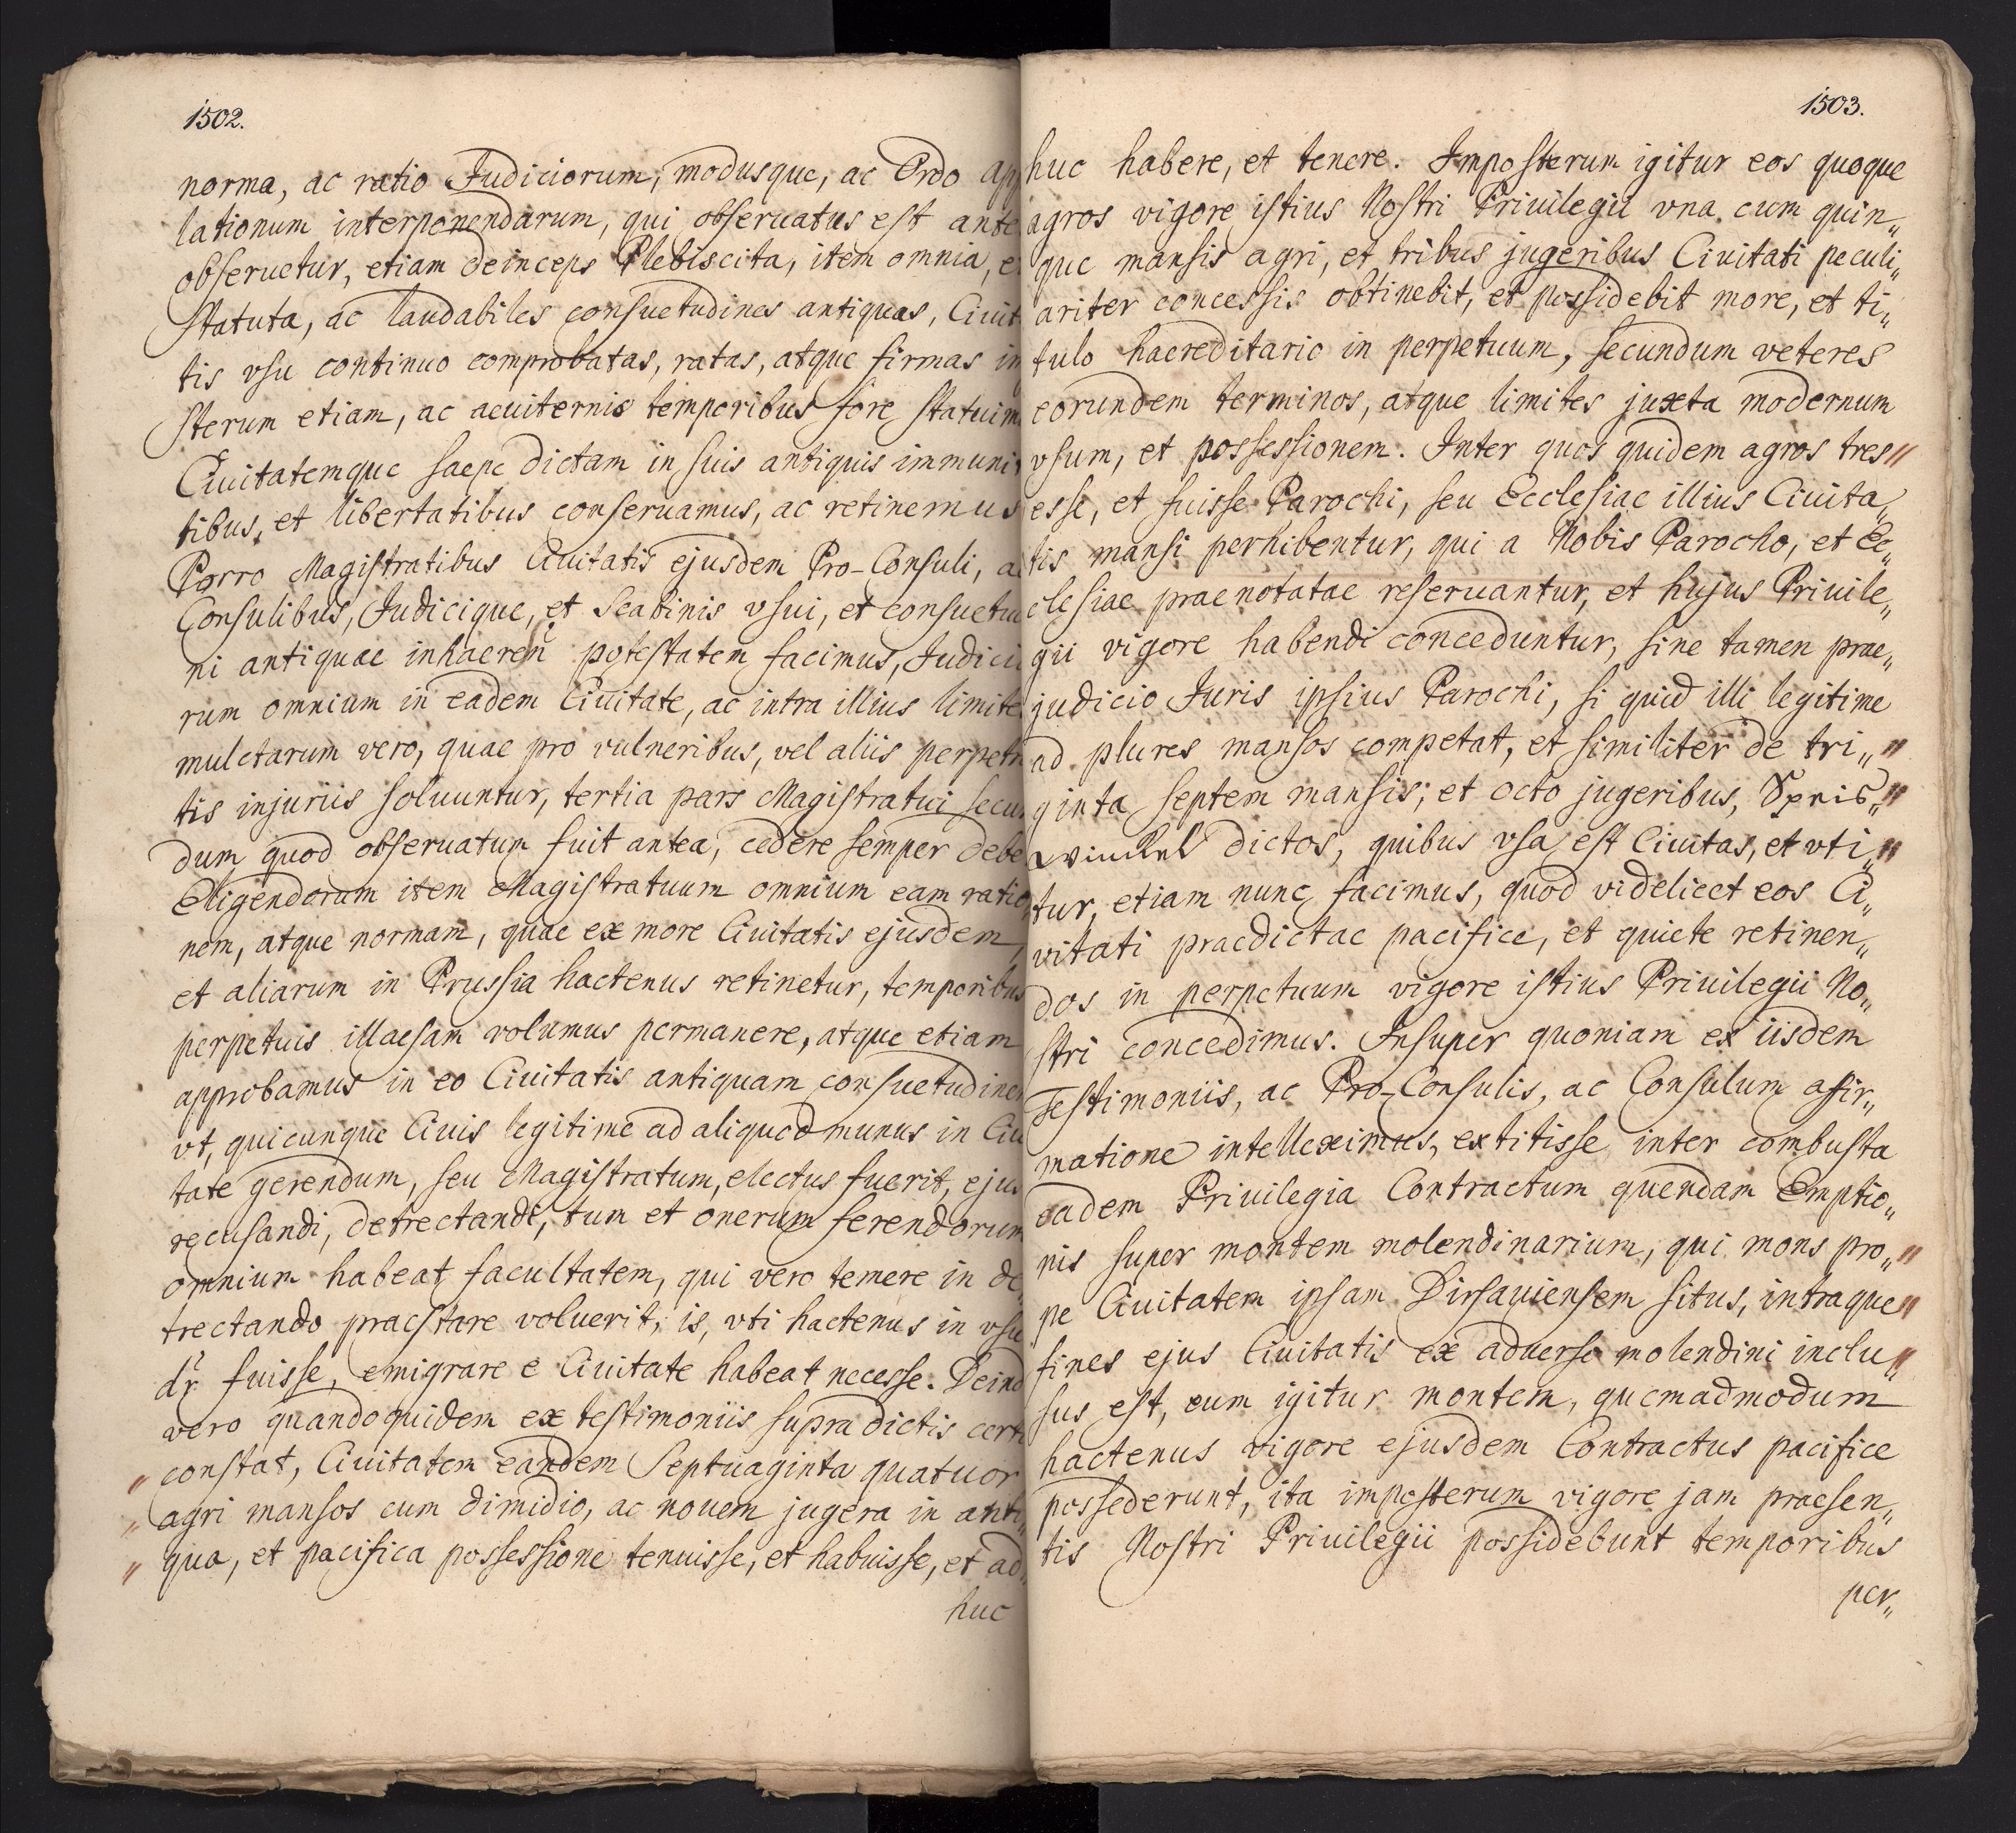 1502.
norma, ac ratio Judiciorum, modusque, ac Ordo app
lationum interponendarum, qui obseruatus est ante
obseruetur, etiam deinceps Plebiscita, item omnia, e
Statuta, ac laudabiles consuetudines antiquas, Ciuit
tis vsu continuo comprobatas, ratas, atque firmas in
sterum etiam, ac aeuiternis temporibus fore statuim
Ciuitatemque saepe dictam in suis antiquis immuni
tibus, et libertatibus conseruamus, ac retinemus
Porro Magistratibus Ciuitatis ejusdem Pro-Consuli, a
Consulibus, Judicique, et Scabinis vsui, et consuetu
ni antiquae inhaeren potestatem facimus, Judicio
rum omnium in eadem Ciuitate, ac intra illius limite
mulctarum vero, quae pro vulneribus, vel aliis perpetr
tis injuriis soluuntur, tertia pars Magistratui secun
dum quod obseruatum fuit antea, cedere semper debe
Eligendorum item Magistratuum omnium eam ratio
nem, atque normam, quae ex more Ciuitatis ejusdem,
et aliarum in Prussia hactenus retinetur, temporibus
perpetuis illaesam volumus permanere, atque etiam
approbamus in eo Ciuitatis antiquam consuetudinem
vt, quicunque Ciuis legitime ad aliquod munus in Ciu
tate gerendum, seu Magistratum, electus fuerit, ejus
recusandi, detrectandi, tum et onerum ferendorum
omnium habeat facultatem, qui vero temere in de„
trectando praestare voluerit, is, vti hactenus in vsu
dr fuisse, emigrare e Ciuitate habeat necesse. Deind
vero quandoquidem ex testimoniis supradictis certo
„ constat, Ciuitatem eandem Septuaginta quatuor
„ agri mansos cum dimidio, ac nouem jugera in anti„
„ qua, et pacifica possessione tenuisse, et habuisse, et ad„
huc
1503.
huc habere, et tenere. Imposterum igitur eos quoque
agros vigore istius Nostri Priuilegii vna cum quin„
que mansis agri, et tribus jugeribus Ciuitati peculi„
ariter concessis obtinebit, et possidebit more, et ti„
tulo haereditario in perpetuum, secundum veteres
eorundem terminos, atque limites juxta modernum
vsum, et possessionem. Inter quos quidem agros tres „
esse, et fuisse Parochi, seu Ecclesiae illius Ciuita„
tis mansi perhibentur, qui a Nobis Parocho, et Ec„
clesiae praenotatae reseruantur, et hujus Priuile„
gii vigore habendi conceduntur, sine tamen prae„
judicio Juris ipsius Parochi, si quid illi legitime
ad plures mansos competat, et similiter de tri„ „
ginta septem mansis, et octo jugeribus, „
winckel dictos, quibus vsa est Ciuitas, et vti„ „
tur, etiam nunc facimus, quod videlicet eos Ci„
vitati praedictae pacifice, et quiete retinen„
dos in perpetuum vigore istius Priuilegii No„
stri concedimus. Insuper quoniam ex iisdem
Testimoniis, ac Pro-Consulis, ac Consulum afir„
matione intelleximus, extitisse inter combusta
eadem Priuilegia Contractum quendam Emptio„
nis super montem molendinarium, qui mons pro„ „
pe Ciuitatem ipsam Dirsauiensem situs, intraque „
fines ejus Ciuitatis ex aduerso molendini inclu„
sus est, eum igitur montem, quemadmodum
hactenus vigore ejusdem Contractus pacifice
possederunt, ita imposterum vigore jam praesen„
tis Nostri Priuilegii possidebunt temporibus
per„